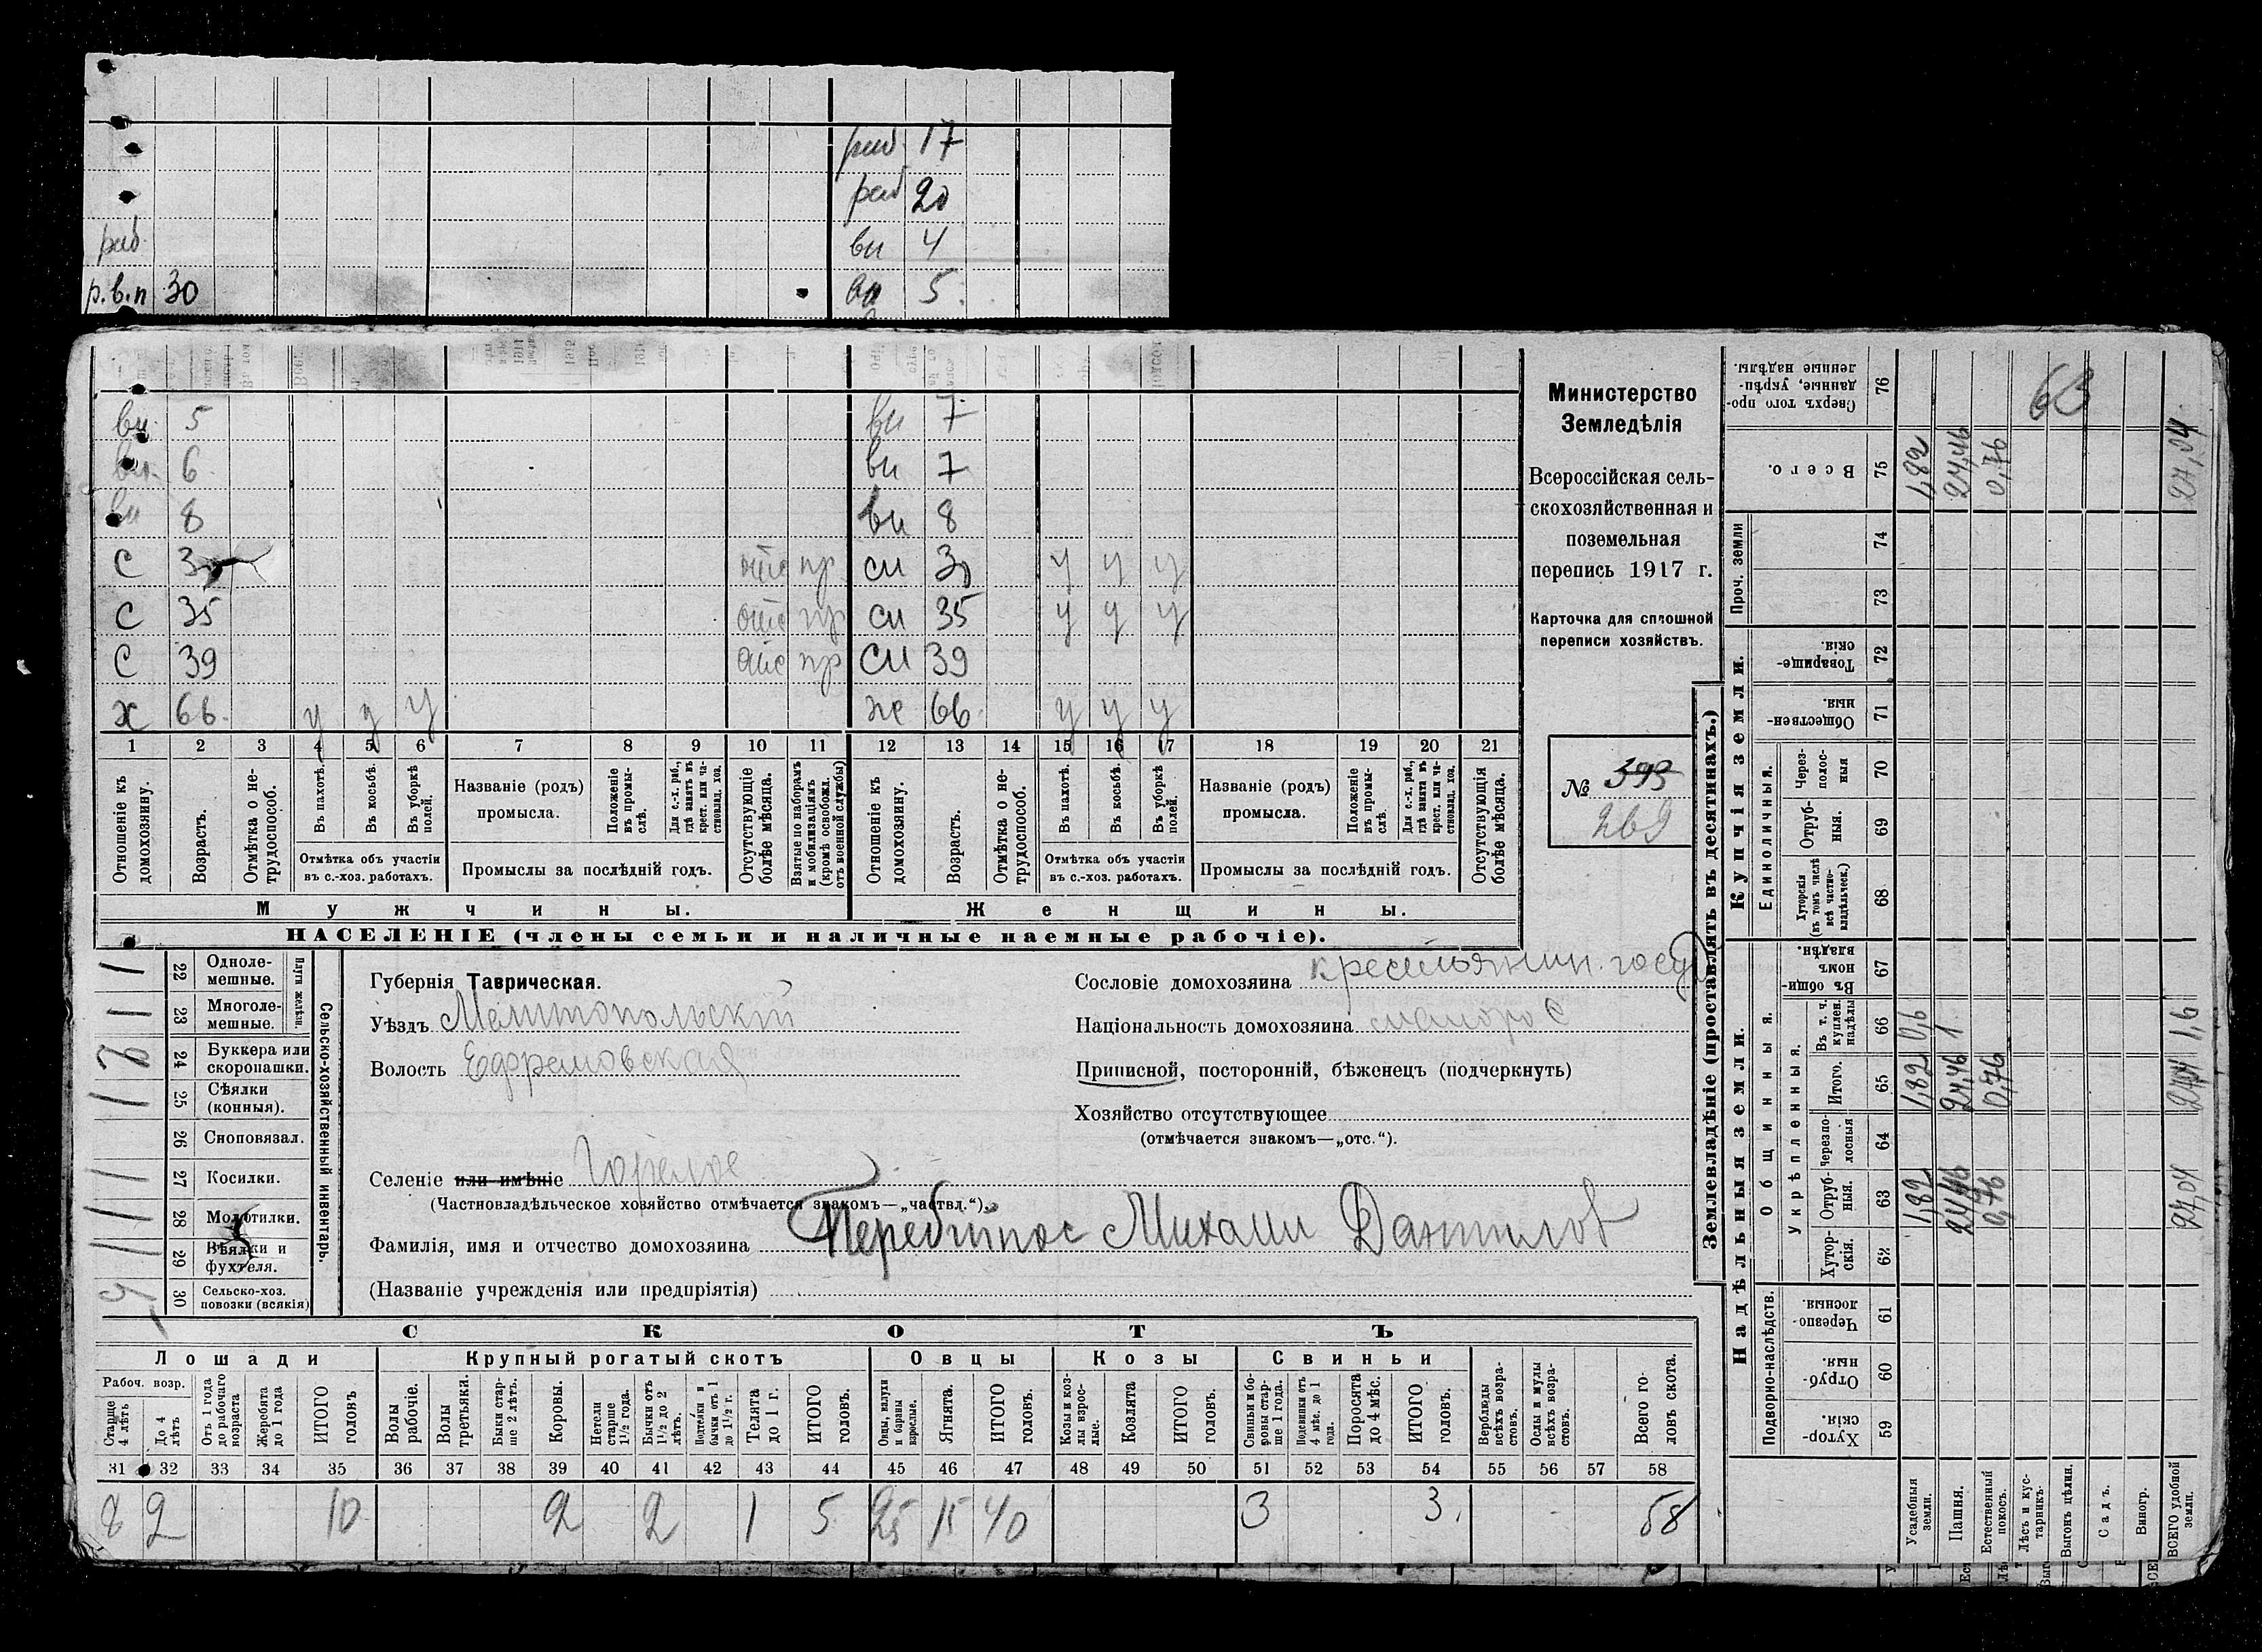 раб 17
раб 20
вн 4
раб
р.в.п 30 вн 5
вн 5 вн 7
вн 6 вн 7
вн 8 вн 8
С 30 отс пр сн 30 у у у
С 35 отс пр сн 35 у у у
С 39 отс пр сн 39
х 66 у у у же 66 у у у
1 2 3 4 5 6 7 8 9 10 11 12 13 14 15 16 17 18 19 20 21
Отношеніе къ домохозяину.
Возрастъ.
Отмѣтка о нетрудоспособ.
Въ пахотѣ.
Въ косьбѣ.
Въ уборкѣ полей.
Отмѣтка объ участіи
въ с.-хоз. работахъ.
Названіе (родъ)
промысла.
Положеніе въ промыслѣ.
Для с.-х. раб., гдѣ занятъ въ крест. или частновлад. хоз.
Промыслы за послѣдній годъ.
Отсутствующіе болѣе мѣсяца.
Взятые по наборамъ и мобилизаціямъ (кромѣ освобожд. отъ военной службы)
Отношеніе къ домохозяину.
Возрастъ.
Отмѣтка о нетрудоспособ.
Въ пахотѣ.
Въ косьбѣ.
Въ уборкѣ полей.
Отмѣтка объ участіи
въ с.-хоз. работахъ.
Названіе (родъ)
промысла.
Положеніе въ промыслѣ.
Для с.-х. раб., гдѣ занята въ крест. или частновлад. хоз.
Промыслы за послѣдній годъ.
Отсутствующія болѣе мѣсяца.
Мужчины. Женщины.
НАСЕЛЕНІЕ (члены семьи и наличные наемные рабочіе).
Министерство
Земледѣлія
Всероссійская сель-
скохозяйственная и
поземельная
перепись 1917 г.
Карточка для сплошной
переписи хозяйствъ.
№ 393
269
Сельско-хозяйственный инвентарь.
Плуги желѣзн.
1 22 Одноле-
мешные.
1 23 Многоле-
мешные.
24 Буккера или
скоропашки.
1 25 Сѣялки
(конныя).
26 Сноповязал.
1 27 Косилки.
1 28 Молотилки.
1 29 Вѣялки и
фухтеля.
4 30 Сельско-хоз.
повозки (всякія)
Губернія Таврическая.
Уѣздъ Мелитопольскій
Волость Ефремовская
Селеніе или имѣніе Горелое
(Частновладѣльческое хозяйство отмѣчается знакомъ—„частвл.“).
Фамилія, имя и отчество домохозяина Перебийнос Михаил Данилов
(Названіе учрежденія или предпріятія)
Сословіе домохозяина крестьянин. госуд
Національность домохозяина малорос
Приписной, посторонній, бѣженецъ (подчеркнуть)
Хозяйство отсутствующее
(отмѣчается знакомъ—„отс.“).
СКОТЪ
Лошади Крупный рогатый скотъ Овцы Козы Свиньи
Рабоч. возр.
Старше 4 лѣтъ
До 4 лѣтъ
Отъ 1 года до рабочаго возраста
Жеребята до 1 года
ИТОГО головъ
Волы рабочіе.
Волы третьяки.
Быки старше 2 лѣтъ.
Коровы.
Нетели старше 1½ года.
Бычки отъ 1½ до 2 лѣтъ.
Подтелки и бычки отъ 1 до 1½ г.
Телята до 1 г.
ИТОГО головъ.
Овцы, валухи и бараны взрослые.
Ягнята.
ИТОГО головъ.
Козы и козлы взрослые.
Козлята
ИТОГО головъ.
Свиньи и боровы старше 1 года.
Подсвинки отъ 4 мѣс. до 1 года
Поросята до 4 мѣс.
ИТОГО головъ.
Верблюды всѣхъ возрастовъ.
Ослы и мулы всѣхъ возрастовъ.
Всего головъ скота.
31 32 33 34 35 36 37 38 39 40 41 42 43 44 45 46 47 48 49 50 51 52 53 54 55 56 57 58
8 2 10 2 2 1 5 25 15 40 3 3 58
Землевладѣніе (проставлять въ десятинахъ.)
Надѣльныя земли. Купчія земли.
Подворно-наслѣдств.
Общинныя.
Укрѣпленныя.
Единоличныя.
Проч. земли
Хуторскія. 59
Отрубныя. 60
Черезполосныя. 61
Хуторскія. 62
Отрубныя. 63 1,82 24,46 0,76 27,04
Черезполосныя 64
Итого. 65 1,82 24,46 0,76 27,04
Въ т. ч. куплен. надѣлы 66 0,6 1 1,6
Въ общинномъ владѣн. 67
Хуторскія (въ томъ числѣ всѣ частновладѣльческ.) 68
Отрубныя. 69
Черезполосныя 70
Общественныя. 71
Товарищескія. 72
73
74
Всего. 75 1,82 24,46 0,76 27,04
Сверхъ того проданные, укрѣпленные надѣлы. 76
63
Усадебныя земли.
Пашня.
Естественный покосъ.
Лѣсъ и кустарникъ.
Выгонъ цѣлин.
Садъ.
Виногр.
ВСЕГО удобной земли.